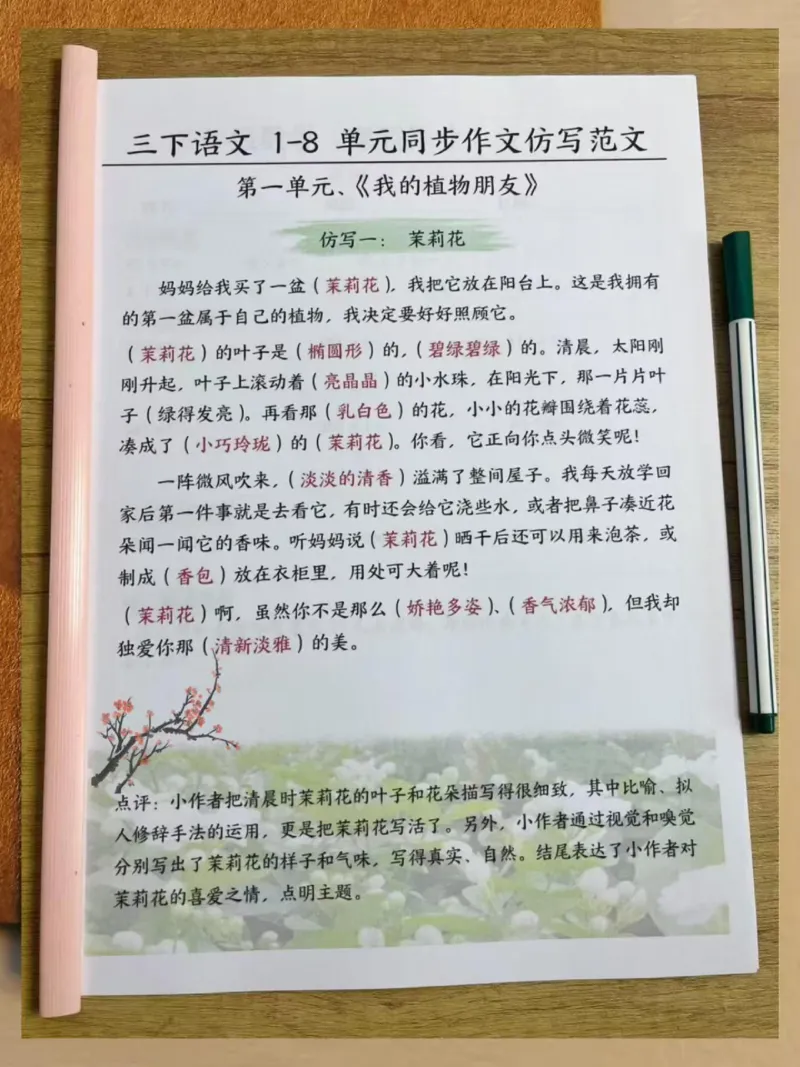 三下语文 1-8 单元同步作文仿写范文
第一单元、《我的植物朋友》
仿写一： 茉莉花
妈妈给我买了一盆（茉莉花），我把它放在阳台上。这是我拥有
的第一盆属于自己的植物，我决定要好好照顾它。
（茉莉花）的叶子是（椭圆形）的，（碧绿碧绿）的。清晨，太阳刚
刚升起，叶子上滚动着（亮晶晶）的小水珠，在阳光下，那一片片叶
子（绿得发亮）。再看那（乳白色）的花，小小的花瓣围绕着花蕊，
凑成了（小巧玲珑）的（茉莉花）。你看，它正向你点头微笑呢！
一阵微风吹来，（淡淡的清香）溢满了整间屋子。我每天放学回
家后第一件事就是去看它，有时还会给它浇些水，或者把鼻子凑近花
朵闻一闻它的香味。听妈妈说（茉莉花）晒干后还可以用来泡茶，或
制成（香包）放在衣柜里，用处可大着呢！
（茉莉花）啊，虽然你不是那么（娇艳多姿）、（香气浓郁），但我却
独爱你那（清新淡雅）的美。
点评：小作者把清晨时茉莉花的叶子和花朵描写得很细致，其中比喻、拟
人修辞手法的运用，更是把茉莉花写活了。另外，小作者通过视觉和嗅觉
分别写出了茉莉花的样子和气味，写得真实、自然。结尾表达了小作者对
茉莉花的喜爱之情，点明主题。